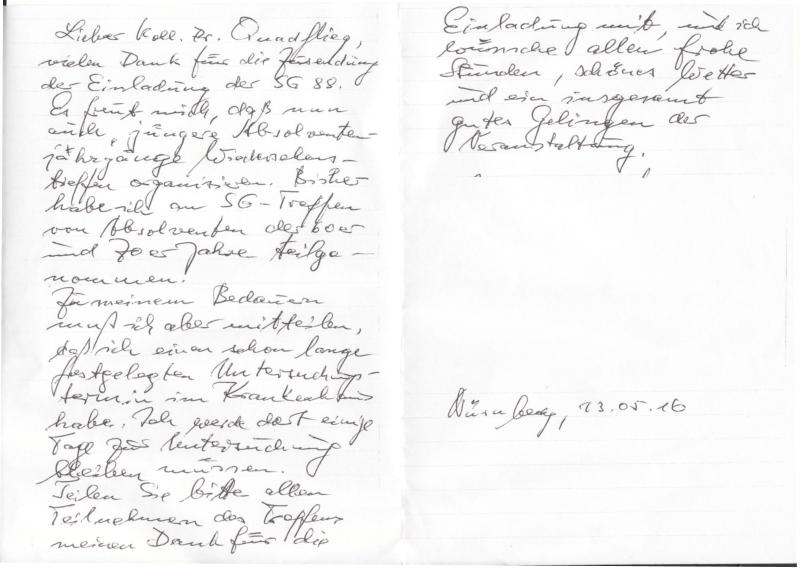 Lieber Koll. Dr. Quadflieg,
vielen Dank für die Zusendung
der Einladung der SG 88.
Es freut mich, daß nun
auch jüngere Absolventen-
jahrgänge Wiedersehens-
treffen organisieren. Bisher
habe ich an SG-Treffen
von Absolventen der 60er
und 70er Jahre teilge-
nommen.
Zu meinem Bedauern
muß ich aber mitteilen,
daß ich einen schon lange
festgelegten Untersuchungs-
termin im Krankenhaus
habe. Ich werde dort einige
Tage zur Untersuchung
bleiben müssen.
Teilen Sie bitte allen
Teilnehmern des Treffens
meinen Dank für die
Einladung mit, und ich
wünsche allen frohe
Stunden, schönes Wetter
und ein insgesamt
gutes Gelingen der
Veranstaltung.
Nürnberg, 13.05.16